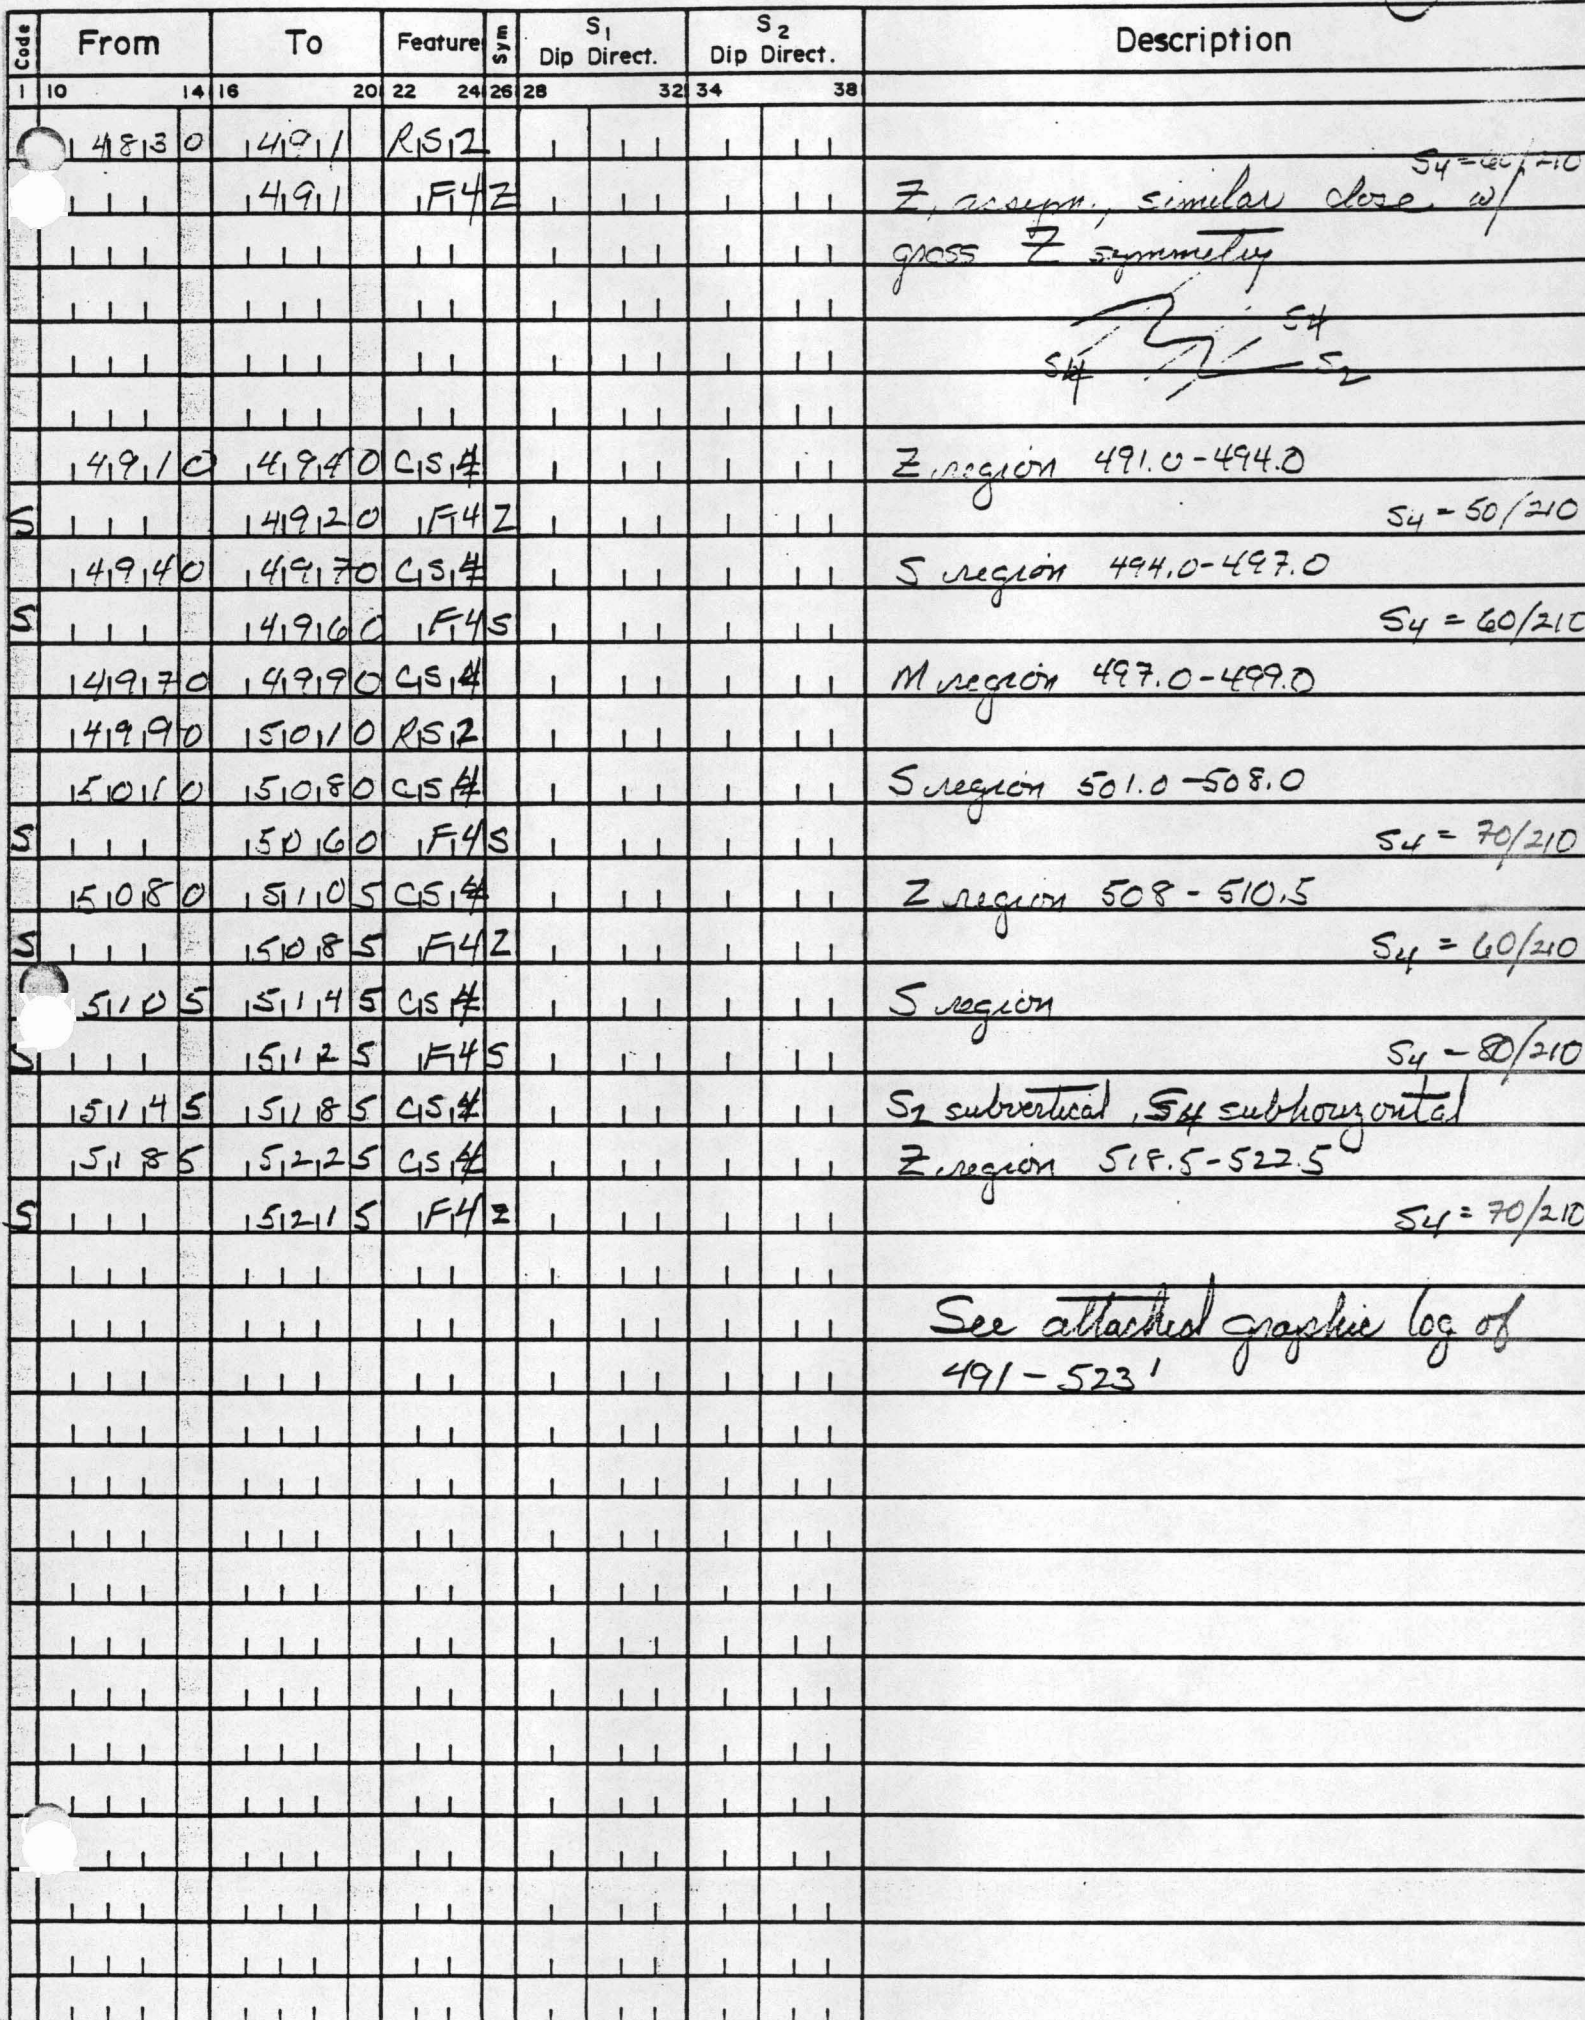 Code From To Feature Sym S1 Dip Direct. S2 Dip Direct. Description
1 10 14 16 20 22 24 26 28 32 34 38
4830 491 RS2
S4 = 60/210
491 F4 Z Z, assym., similar close w/
gross Z symmetry
S4
S4 S2
4910 4940 CS4 Z region 491.0-494.0
S 4920 F4 Z S4 = 50/210
4940 4970 CS4 S region 494.0-497.0
S 4960 F4 S S4 = 60/210
4970 4990 CS4 M region 497.0-499.0
4990 5010 RS2
5010 5080 CS4 S region 501.0-508.0
S 5060 F4 S S4 = 70/210
5080 5105 CS4 Z region 508-510.5
S 5085 F4 Z S4 = 60/210
5105 5145 CS4 S region
S 5125 F4 S S4 = 80/210
5145 5185 CS4 S2 subvertical, S4 subhorizontal
5185 5225 CS4 Z region 518.5-522.5
S 5215 F4 Z S4 = 70/210
See attached graphic log of
491-523'